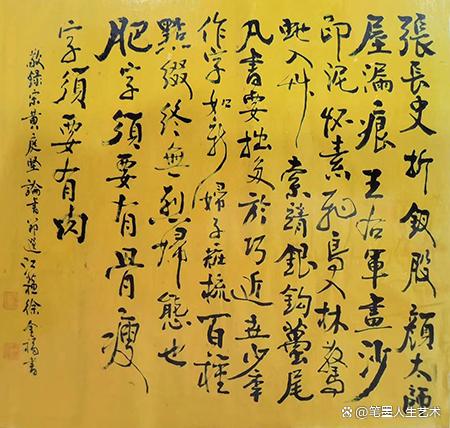 張長史折釵股顏太師
屋漏痕王右軍畫沙
印泥怀素飛鳥入林驚
蛇入艸索靖銀鉤蠆尾
凡書要拙多於巧近世少年
作字如新婦子粧梳百種
點綴終無烈婦態也
肥字須要有骨瘦
字須要有肉
敬録宋黃庭堅論書節選江蘇徐金書
@笔墨人生艺术